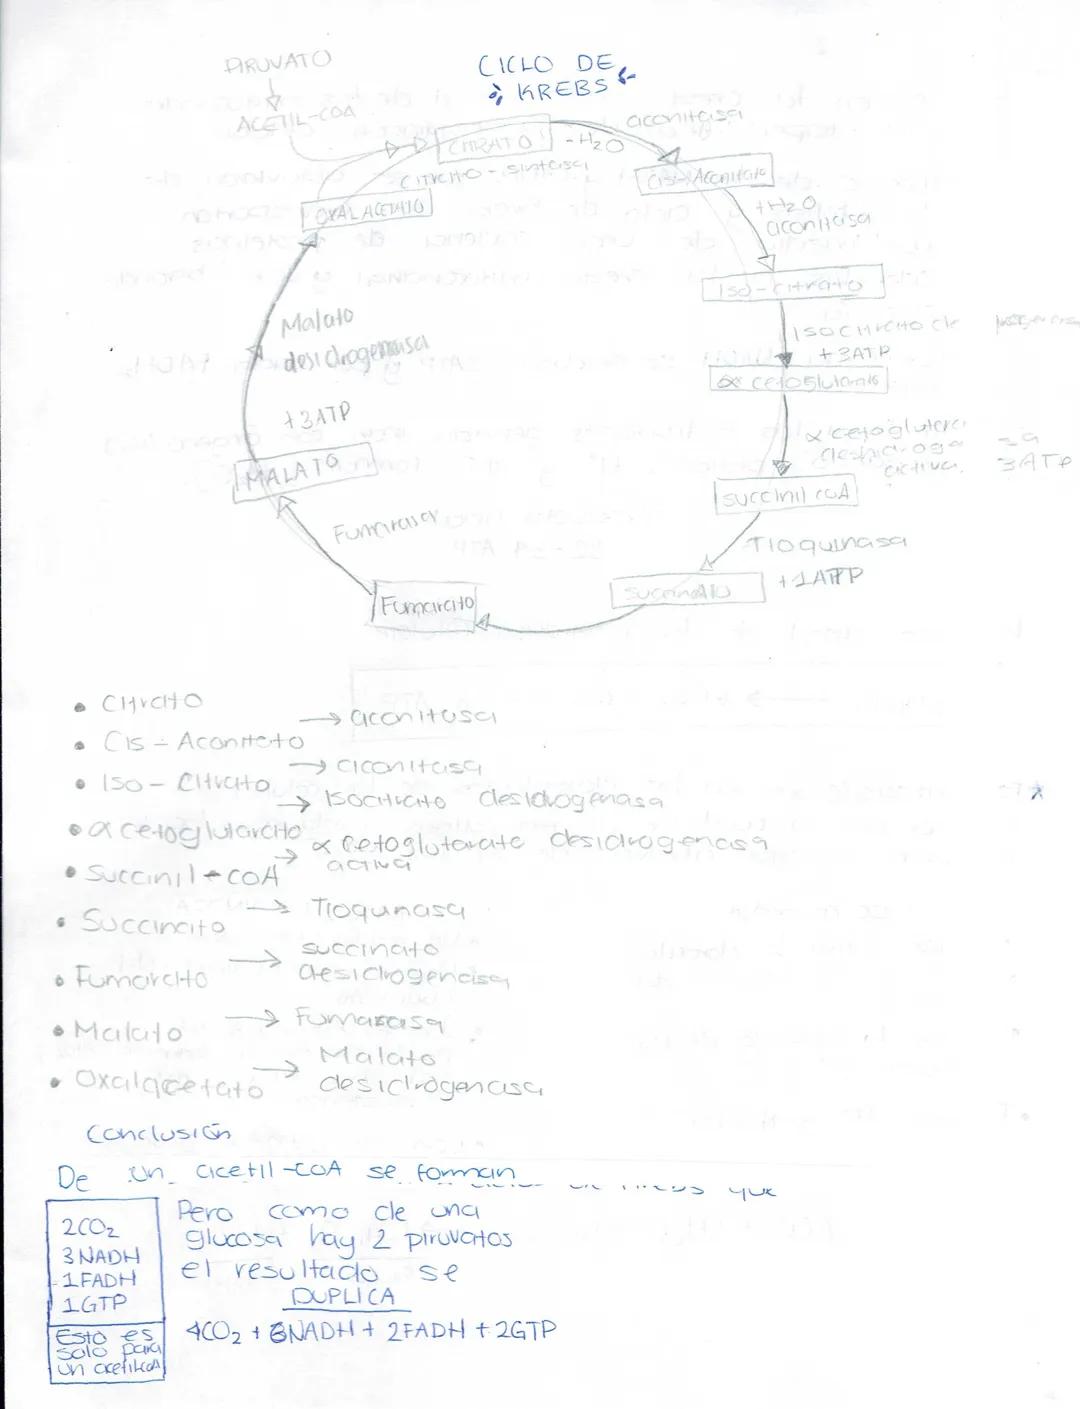 PIRUVATO
CICLO DE
KREBS
ACETIL-COA
aconitasa
CITRATO
- H2O
citrato - sintasa
Cis-Aconitato
OXALACETATO
+ H2O
aconitasa
Iso-citrato
Malato
desidrogenasa
Isocitrato de
+3ATP
α cetoglutarato
+3ATP
α cetoglutara
activa.
3ATP
MALATO
succinil coA
Fumarasa
Tioquinasa
+1ATP
succinato
Fumarato
• Citrato
→ aconitasa
• Cis - Aconitato
→ aconitasa
• Iso - Citrato
→ Isocitrato desidrogenasa
• α cetoglutarato
→ α cetoglutarato desidrogenasa
activa
• Succinil - COA
→ Tioquinasa
• Succinato
→ succinato
desidrogenasa
• Fumarato
→ Fumarasa
• Malato
→ Malato
desidrogenasa
• Oxalacetato
Conclusión
De un acetil-COA se forman
que
2CO2
3NADH
1FADH
1GTP
Esto es
solo para
un acetilcoA
Pero como de una
glucosa hay 2 piruvatos
el resultado se
DUPLICA
4CO2 + 6NADH + 2FADH + 2GTP